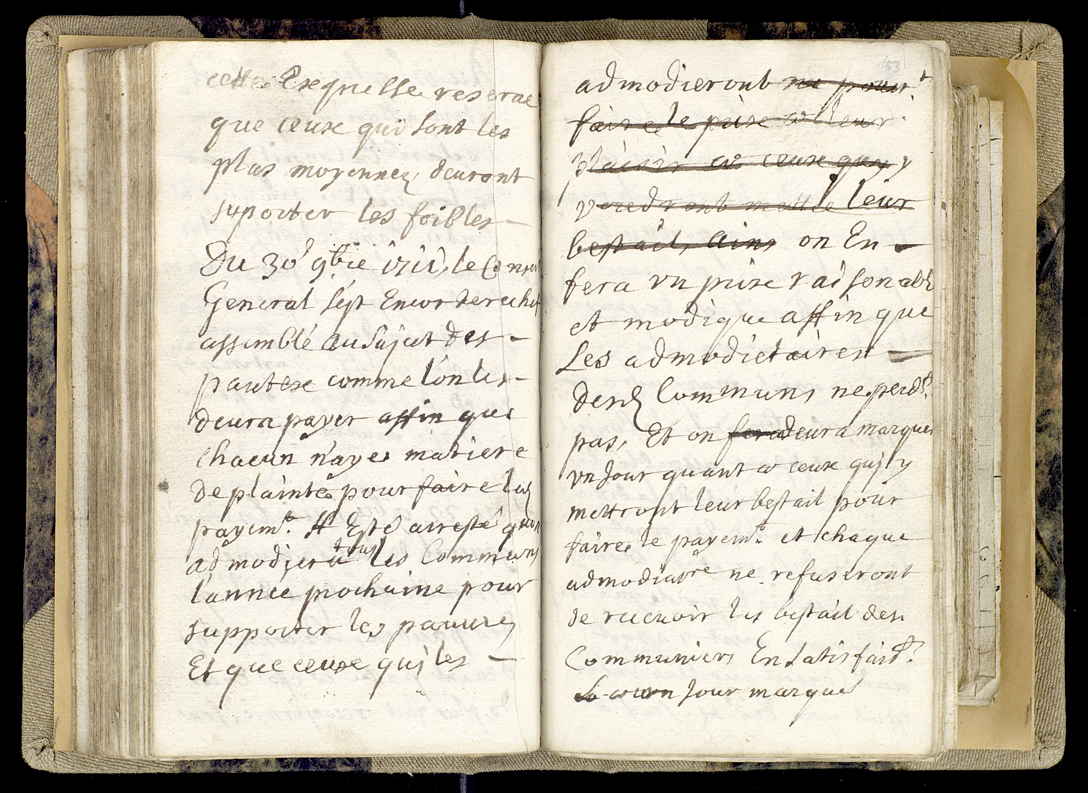 que ceux qui sont les
plus moyennez deuront
suporter les foibles —
Du 30e 9bre 1711, le Con
General s'est Encor derechef
assemblé au sujet des —
pautex comme l'on les —
deura payer affin que
chacun n'aye matiere
de plainte pour faire les
payemt. Il Est arresté qu'on
admodiera tous les Communs
l'année prochaine pour
supporter les pauures
Et que ceux qui les —
153
admodieront ne pour
faire le prix à leur
plaisir à ceux quy y
voudront mettre leur
bestail, ains on En —
fera un prix raisonabl
et modique affin que
Les admodietaires —
desd Communs ne perdt
pas, Et on fera deura marquer
un Jour quant à ceux qui y
mettront leur bestail pour
faire le payemt. et chaque
admodiatre ne refuseront
de recevoir les bestail des
Communiers En satisfaist
un Jour marqué